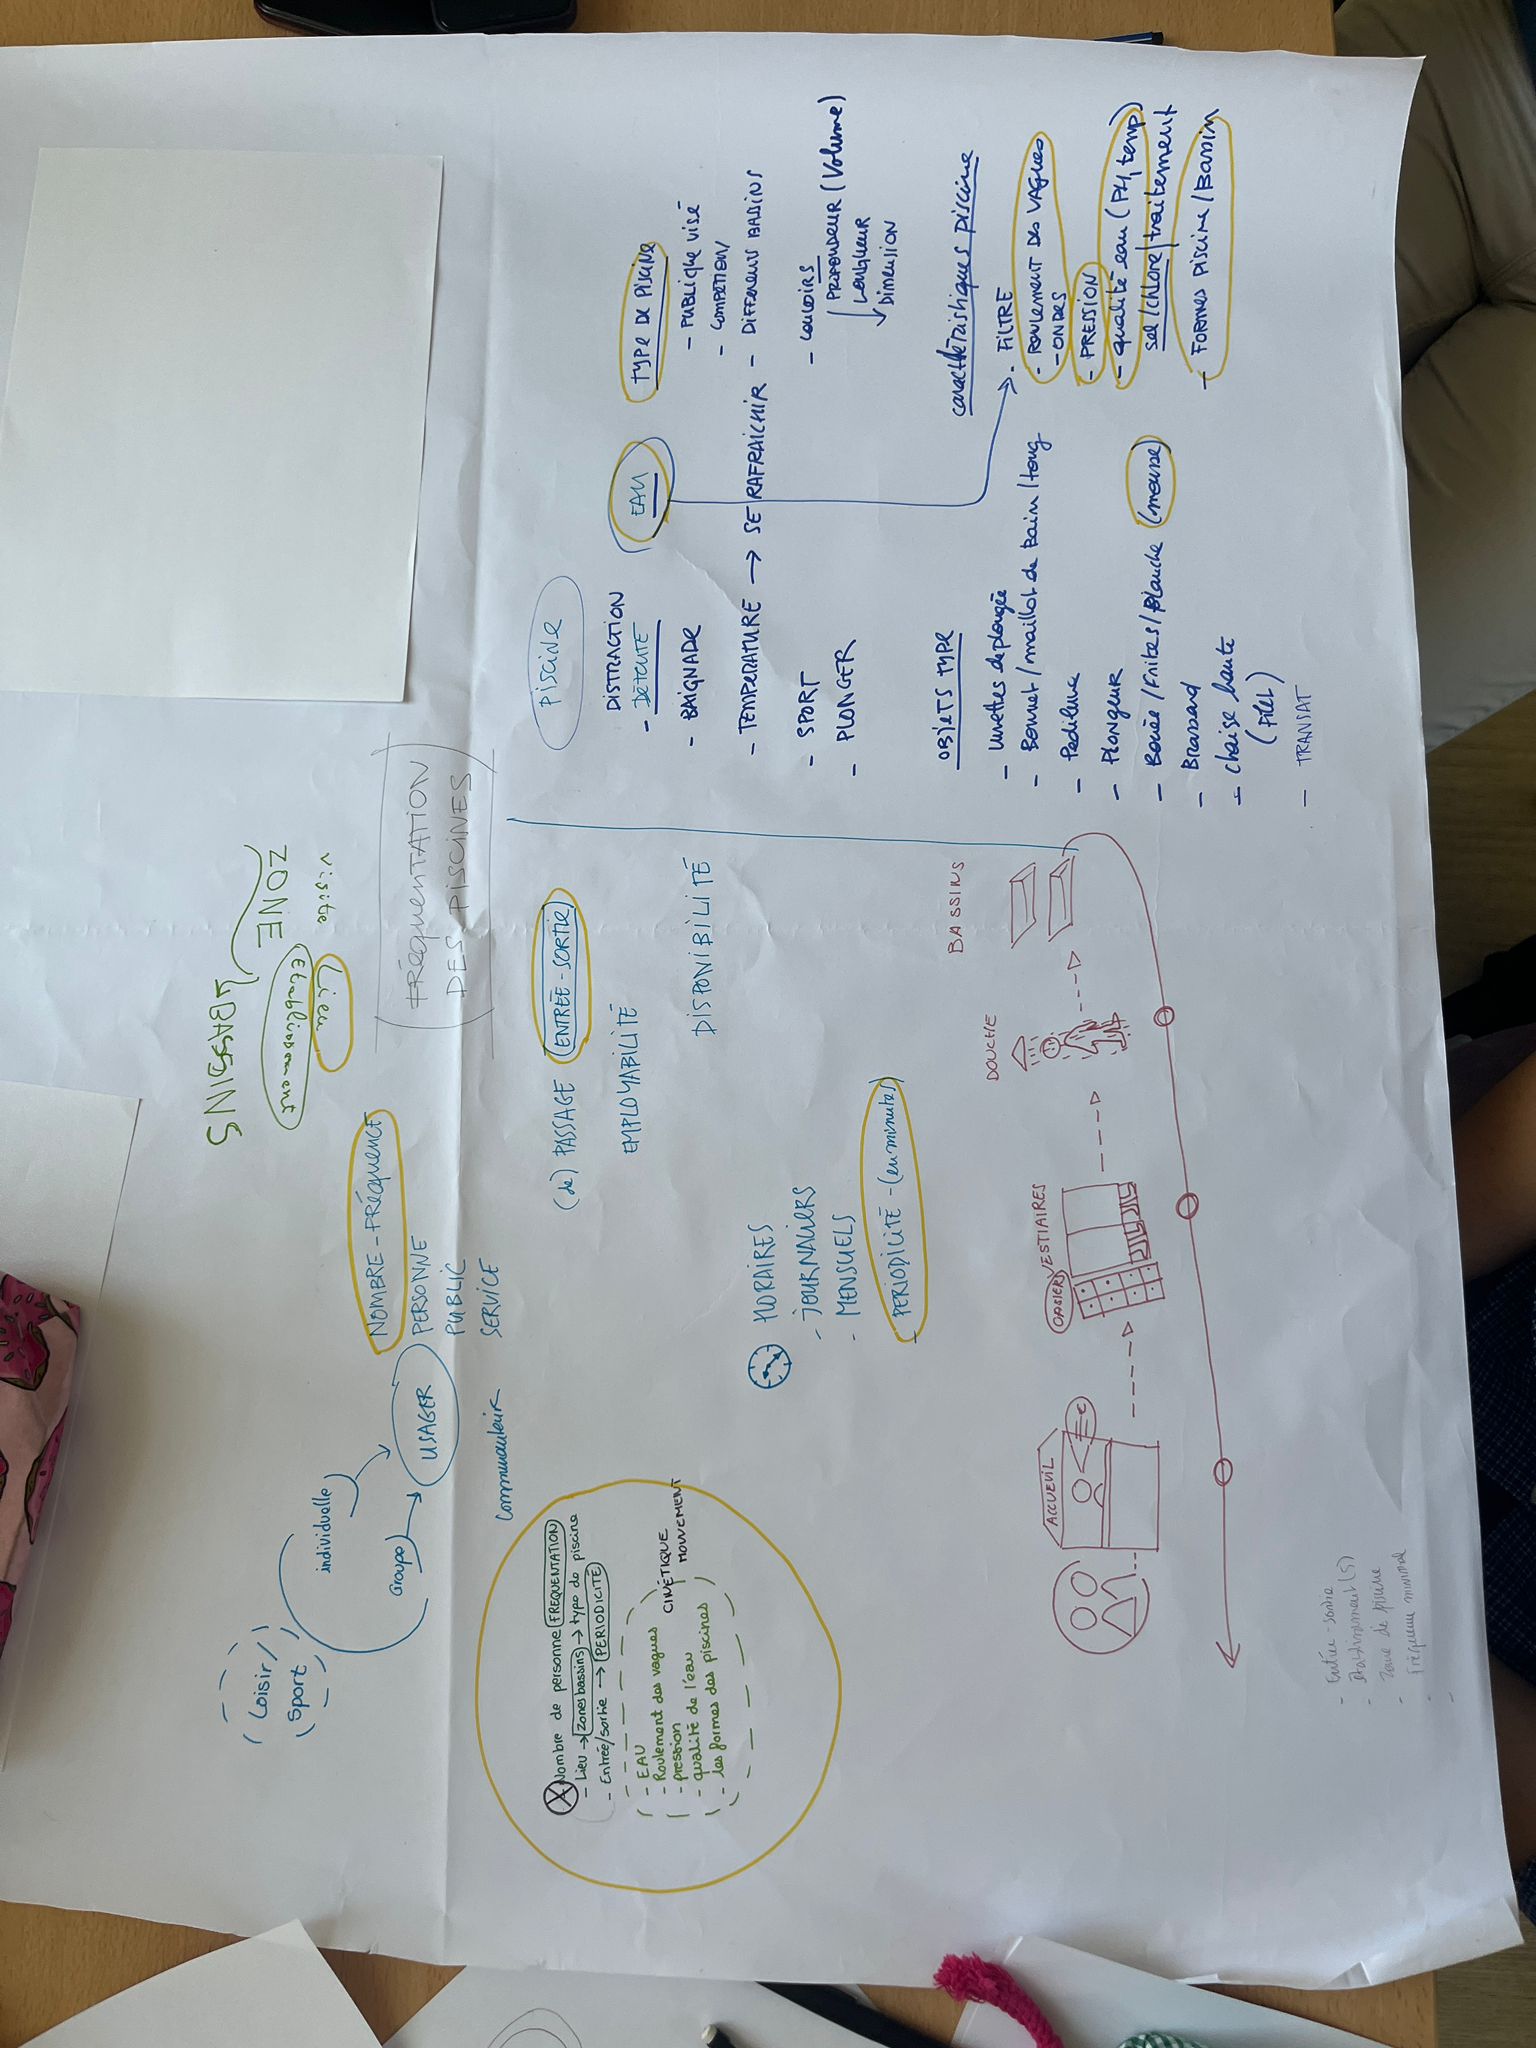 (FRÉQUENTATION
DES PISCINES)
ZONE
BASSINS
visite
Lieu
Etablissement
Loisir/
Sport
individuelle
Groupe
USAGER
NOMBRE - FRÉQUENCE
PERSONNE
PUBLIC
SERVICE
(de) PASSAGE ENTRÉE - SORTIE
EMPLOYABILITÉ
DISPONIBILITÉ
HORAIRES
- JOURNALIERS
- MENSUELS
- PERIODICITÉ - (en minutes)
Nombre de personne FREQUENTATION
- Lieu → zones bassins → type de piscine
- Entrée/sortie → PERIODICITÉ
- EAU
- Roulement des vagues
- pression
- qualité de l'eau
- les formes des piscines
CINÉTIQUE
MOUVEMENT
ACCUEUIL
€
CASIERS
VESTIAIRES
DOUCHE
BASSINS
- Entrée - sortie
- établissement(s)
- zone de piscine
- fréquence minimal
PISCINE
DISTRACTION
- DÉTENTE
- BAIGNADE
- TEMPERATURE → SE RAFRAICHIR
- SPORT
- PLONGER
EAU
TYPE DE PISCINE
- PUBLIQUE VISÉ
- COMPETION/
- DIFFERENTS BASSINS
- COULOIRS
PROFONDEUR (Volume)
LONGUEUR
DIMENSION
OBJETS TYPE
- Lunettes de plongée
- Bonnet / maillot de bain / tong
- Pediluve
- PLONGEUR
- Bouée / Frites / planche (mousse)
- Brassard
- chaise haute
(FILET)
- TRANSAT
caractéristiques piscine
- FILTRE
- ROULEMENT DES VAGUES
- ONDES
- PRESSION
- qualité eau (PH, temp)
sel / chlore / traitement
- FORMES PISCINE / Bassin